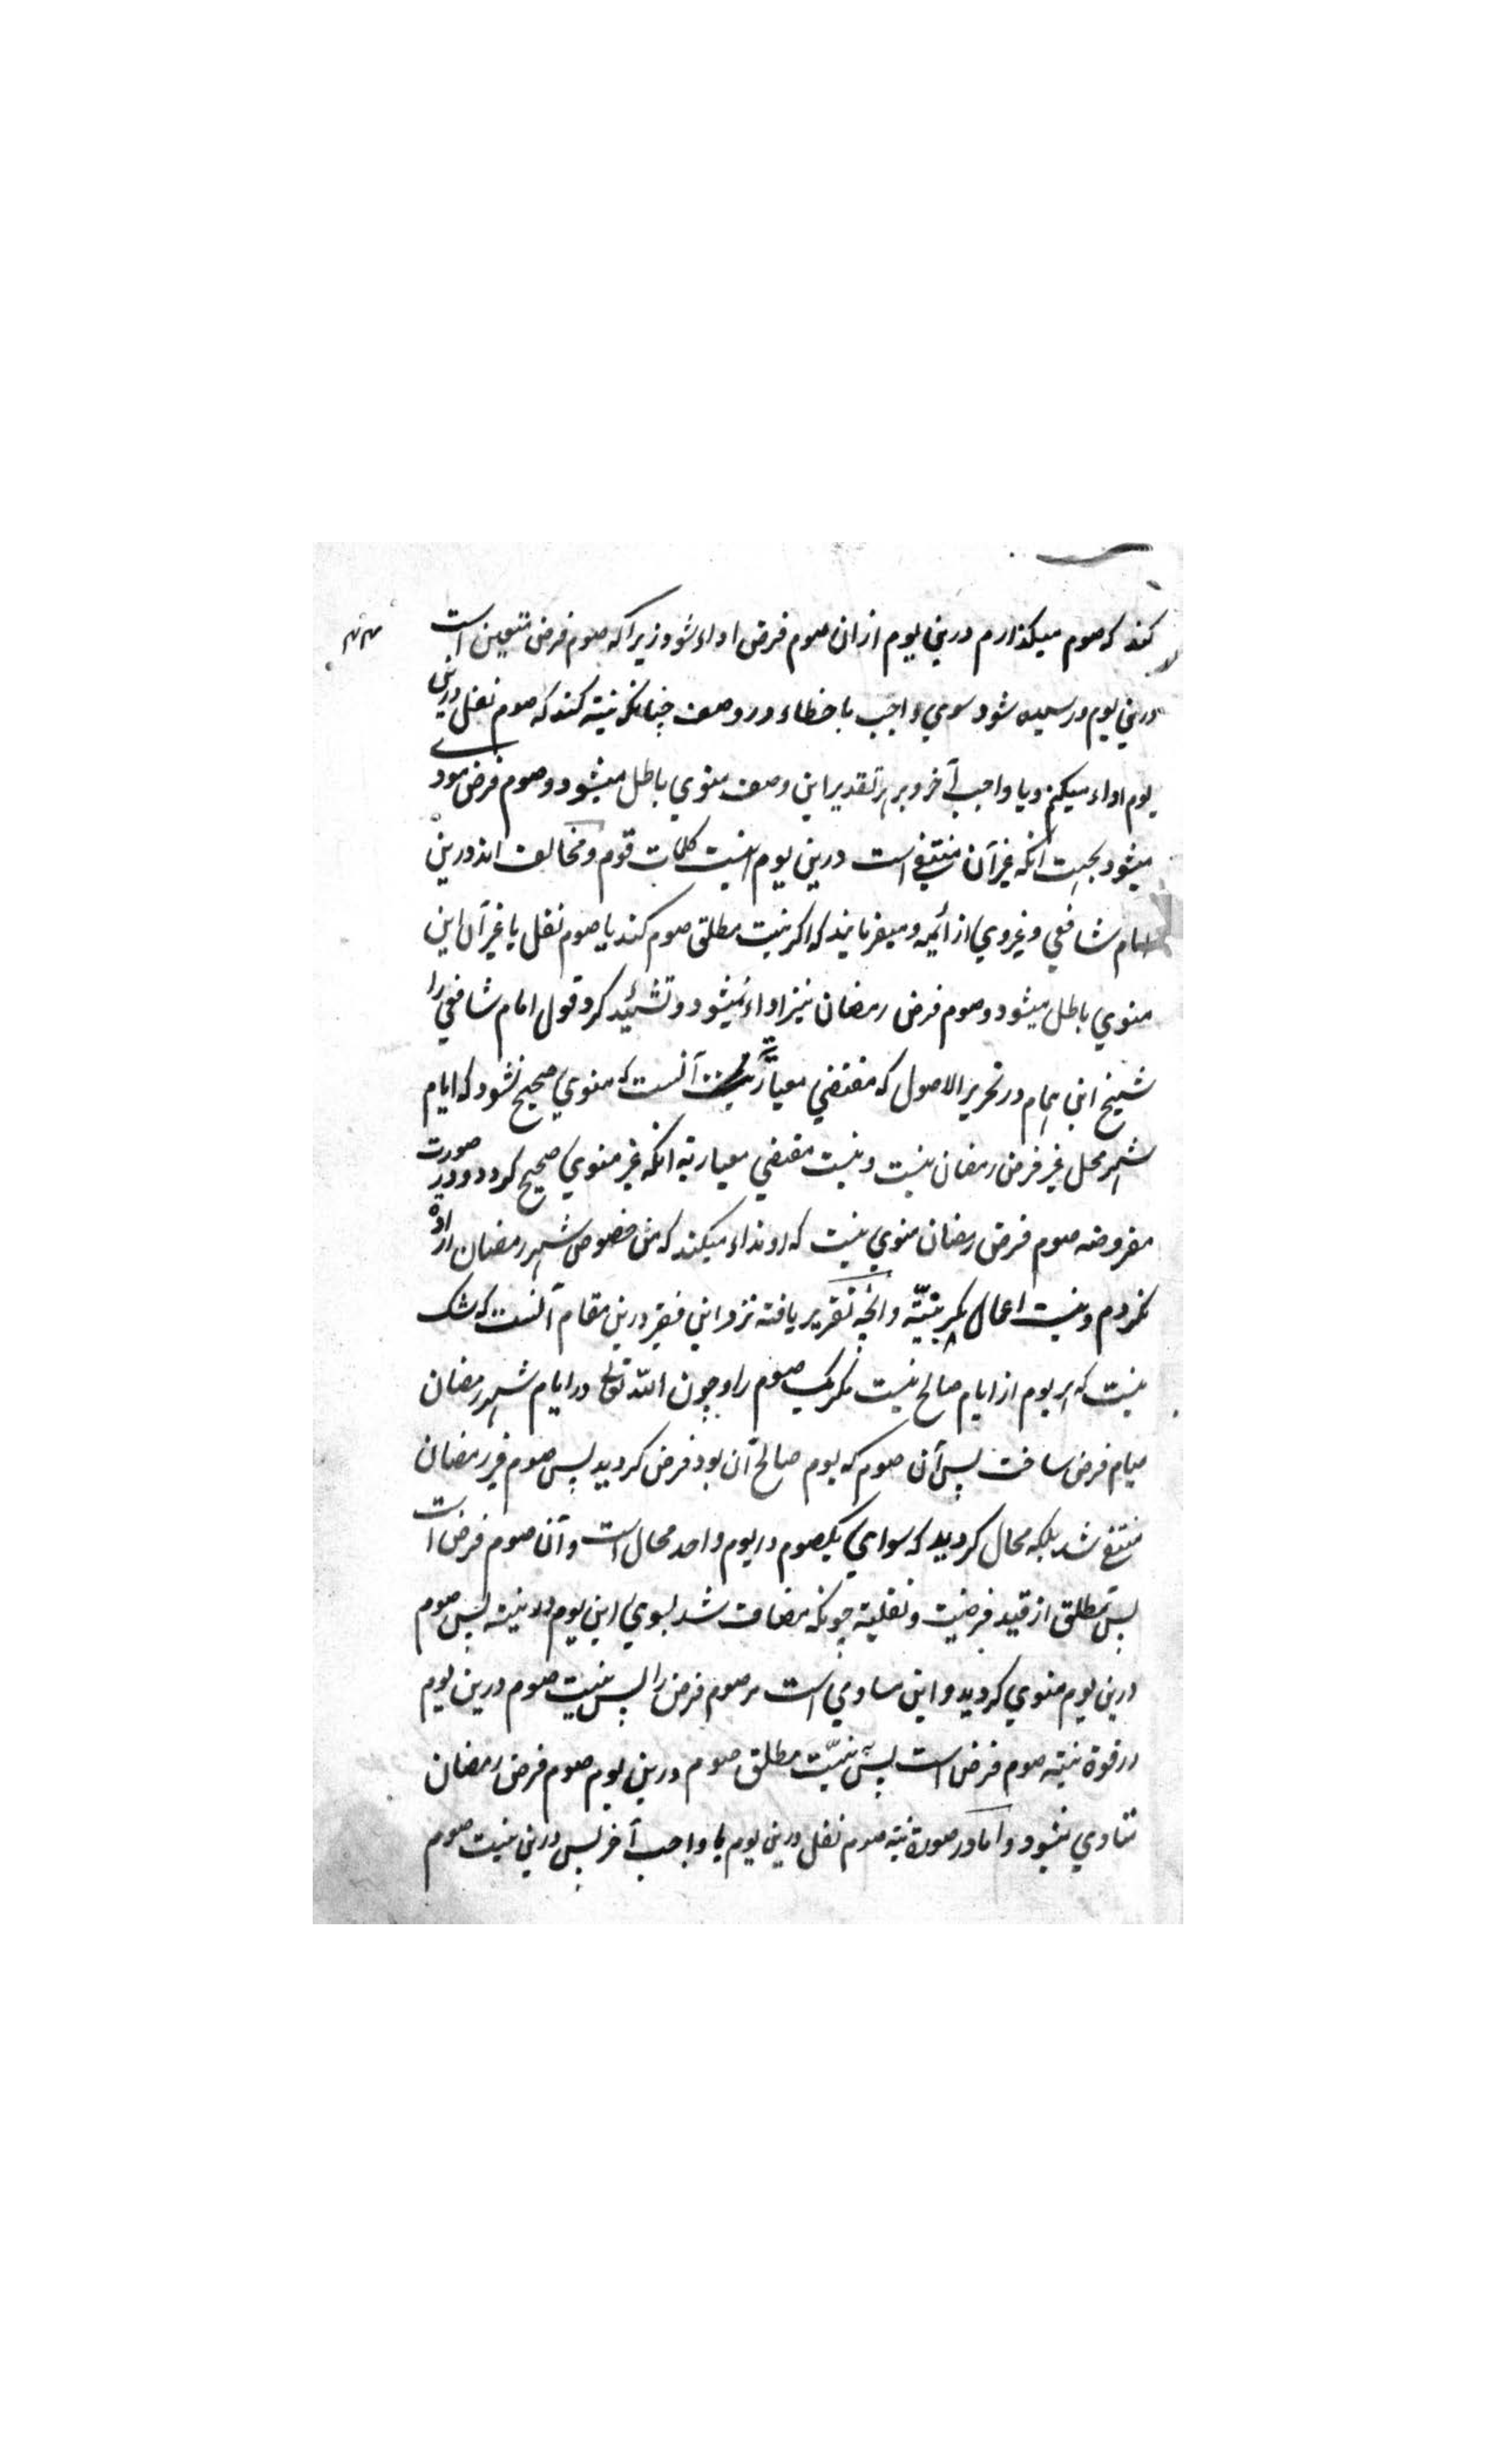 کند که صوم میکذارم درین یوم ازان صوم فرض اداء شود زیرا که صوم فرض متعین است
درین یوم و رسیده شود سوی واجب با خطاء در وصف چنانکه نیته کند که صوم نفل درین
یوم اداء میکنم و یا واجب آخر و بر هر تقدیر این وصف منوی باطل میشود و صوم فرض
میشود بجهت آنکه غیر آن منتفی است درین یوم اینست کلمات قوم و مخالف اند درین
امام شافعی و غیر وی از ائمه و میفرمایند که اکر نیت مطلق صوم کند یا صوم نفل یا غیر آن این
منوی باطل میشود و صوم فرض رمضان نیز اداء نمیشود و تشئید کرد قول امام شافعی را
شیخ ابن همام در تحریر الاصول که مقتضی معیاریت آنست که منوی صحیح نشود که ایام
شهر محل غیر فرض رمضان نیست و نیست مقتضی معیاریه آنکه غیر منوی صحیح کردد و در صورت
مفروضه صوم فرض رمضان منوی نیست که او نداء میکند که من خصوص شهر رمضان اراده
نکردم و نیست اعمال مکر بنیّة و آنچه تقریر یافته نزد این فقیر درین مقام آنست که شک
نیست که هر یوم از ایام صالح نیست مکر یک صوم را و چون الله تعالی در ایام شهر رمضان
صیام فرض ساخت پس آن صوم که یوم صالح آن بود فرض کردید پس صوم غیر رمضان
منتفی شد بلکه محال کردید که سوای یکصوم در یوم واحد محال است و آن صوم فرض است
پس مطلق از قید فرضیت و نفلیته چونکه مضاف شد بسوی این یوم در نیته پس صوم
درین یوم منوی کردید و این مساوی است مر صوم فرض را پس نیت صوم درین یوم
در قوة نیته صوم فرض است پس نیّت مطلق صوم درین یوم صوم فرض رمضان
متادی میشود و اما در صورة نیته صوم نفل درین یوم یا واجب آخر پس درین نیت صوم